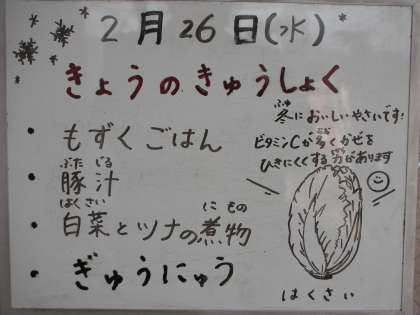 2月26日(水)
きょうのきゅうしょく
・もずくごはん
ぶた じる
・豚汁
はくさい に もの
・白菜とツナの煮物
・ぎゅうにゅう
ふゆ
冬においしいやさいです!
おお
ビタミンCが多くかぜを
ちから
ひきにくくする力があります
はくさい